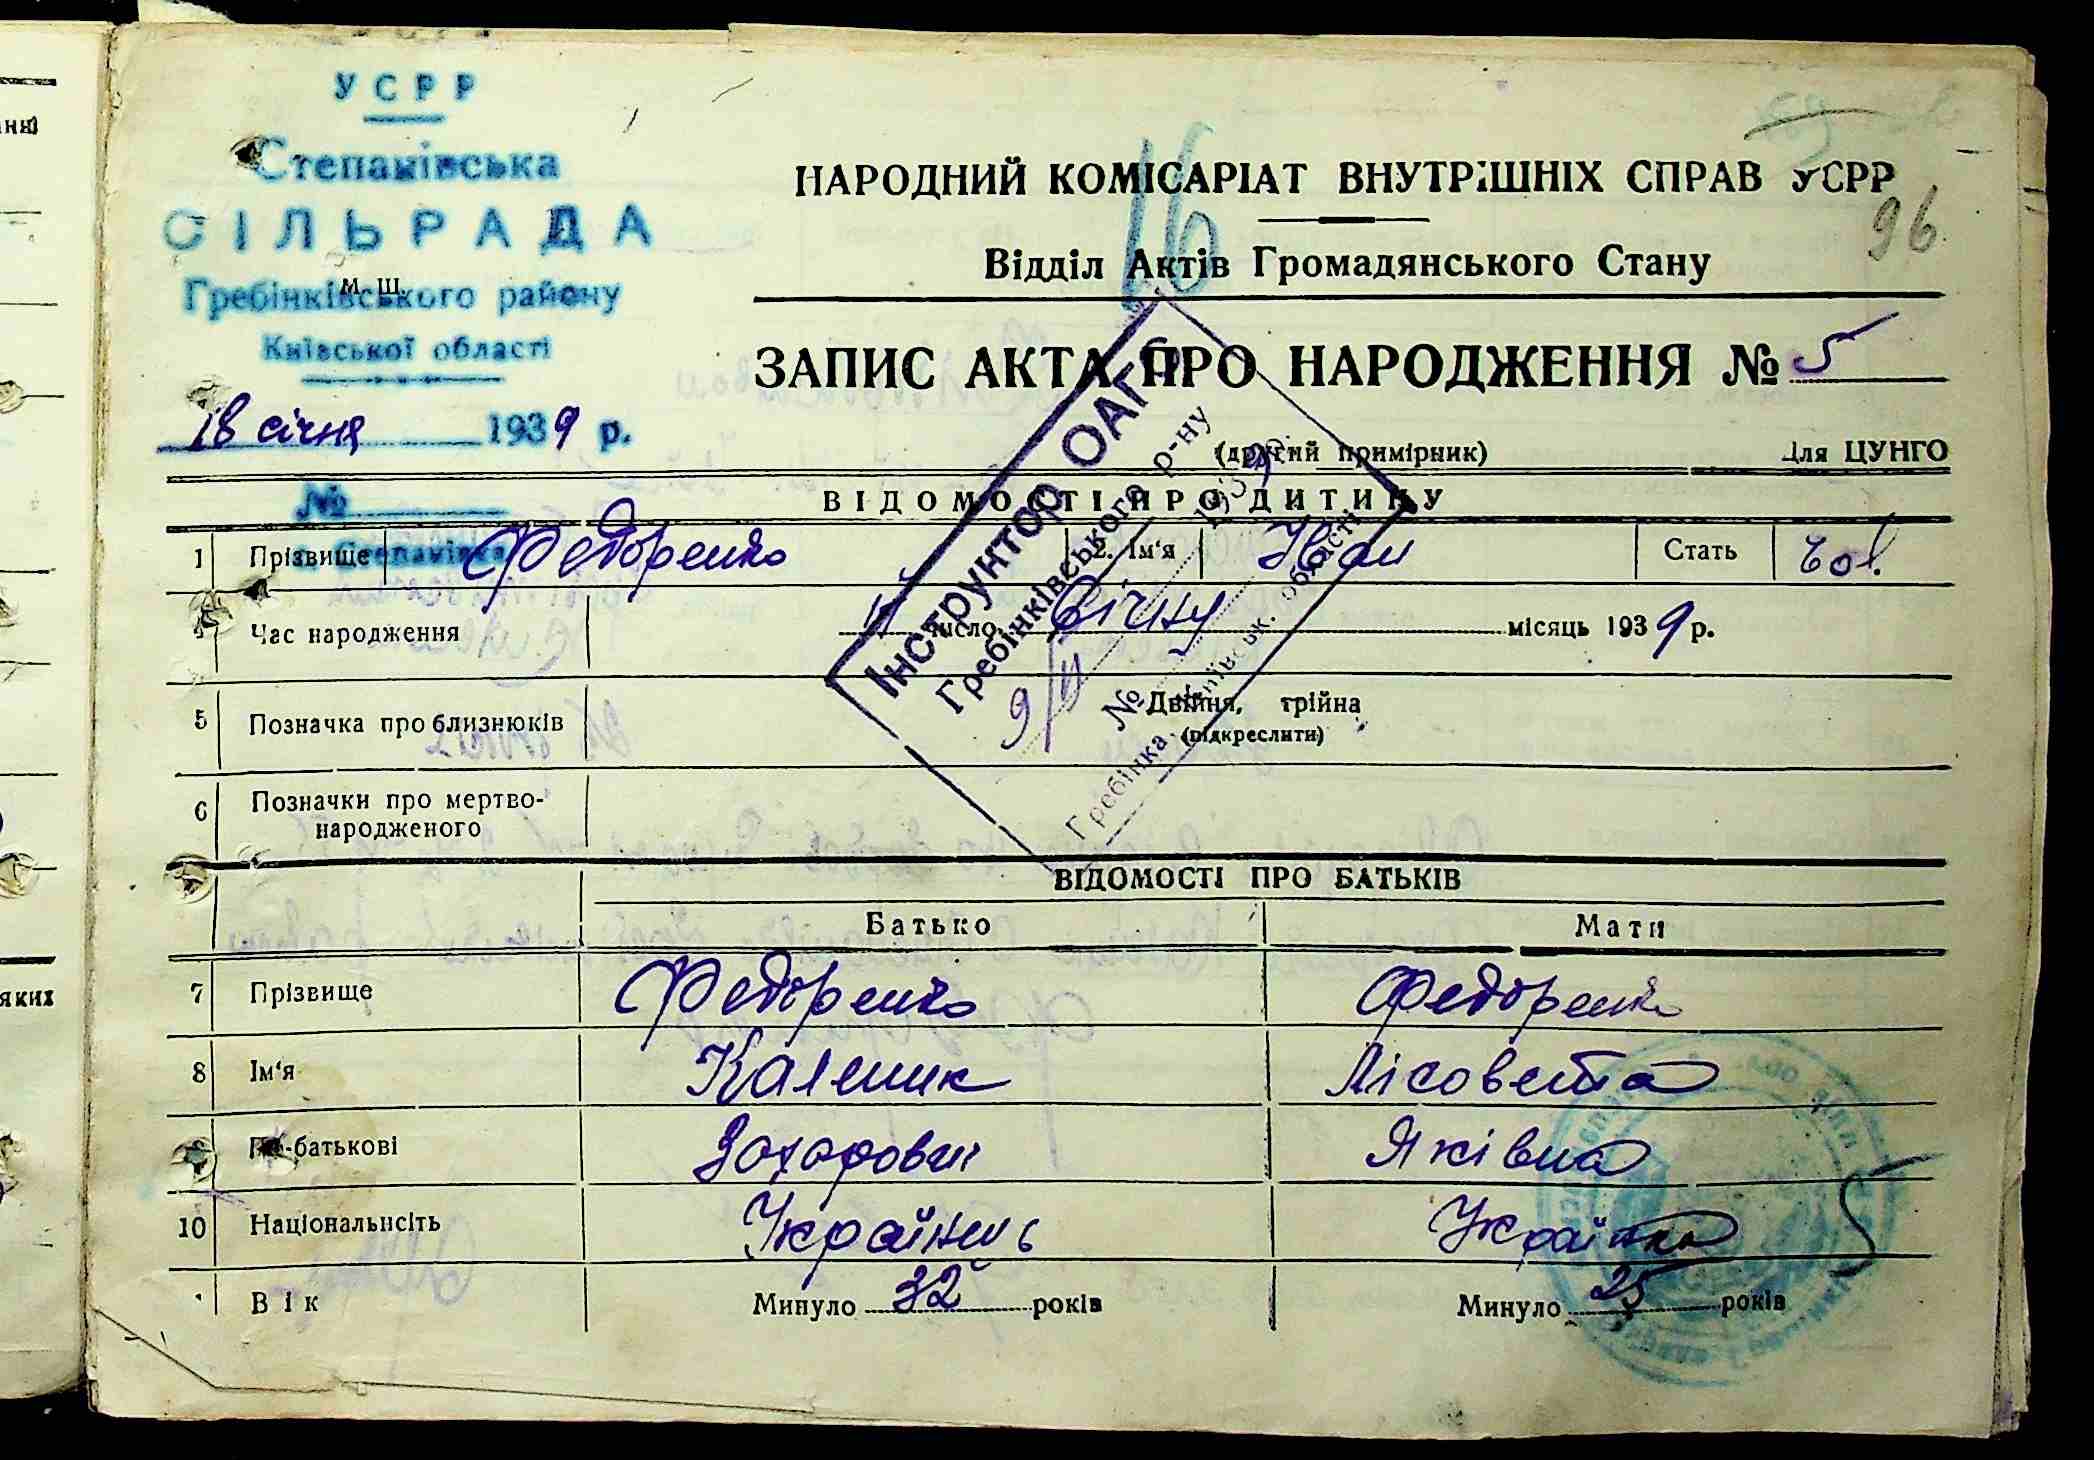 УСРР
Степанівська
СІЛЬРАДА
М. Ш.
Гребінківського району
Київської області
18 січня 1939 р.
№
с. Степанівка
НАРОДНИЙ КОМІСАРІАТ ВНУТРІШНІХ СПРАВ УСРР
16
96
Відділ Актів Громадянського Стану
ЗАПИС АКТА ПРО НАРОДЖЕННЯ № 5
(другий примірник) Для ЦУНГО
ВІДОМОСТІ ПРО ДИТИНУ
1 Прізвище Федоренко 2. Ім'я Іван Стать чол.
Час народження число січня місяць 1939 р.
5 Позначка про близнюків Двійня, трійна
(підкреслити)
6 Позначки про мертво-
народженого
Інструктор ОАГС
Гребінківського р-ну
9/II 1939 р.
№
Гребінка, Київськ. області
ВІДОМОСТІ ПРО БАТЬКІВ
Батько Мати
7 Прізвище Федоренко Федоренко
8 Ім'я Каленик Лісовета
9 По-батькові Захарович Яківна
10 Національність Українець Українка
Вік Минуло 32 років Минуло 25 років
нні
яких